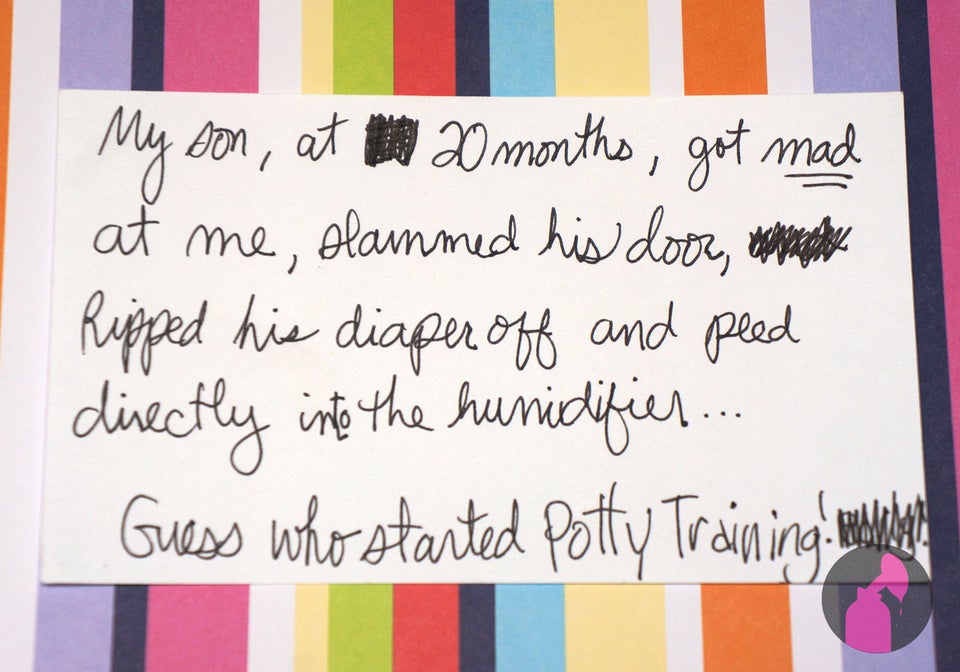 My son, at 20 months, got mad
at me, slammed his door,
Ripped his diaper off and peed
directly into the humidifier...
Guess who started Potty Training!